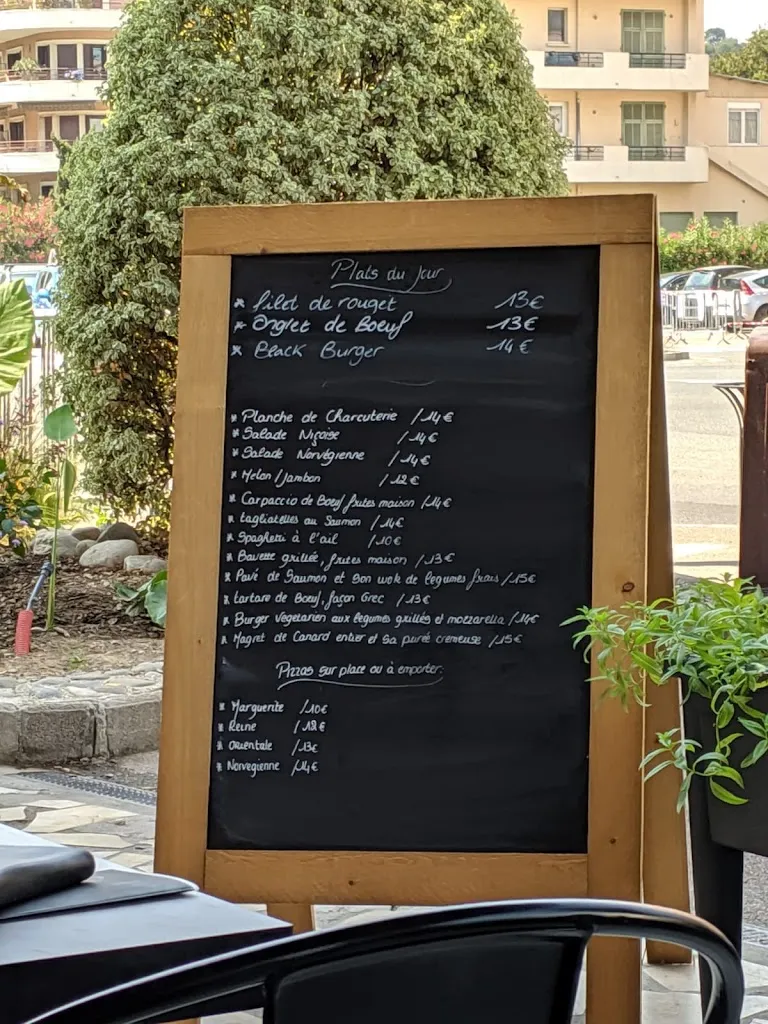 Plats du Jour
* filet de rouget 13€
* Onglet de Boeuf 13€
* Black Burger 14€
* Planche de Charcuterie /14€
* Salade Niçoise /14€
* Salade Norvégienne /14€
* Melon/Jambon /12€
* Carpaccio de Boeuf frites maison /14€
* tagliatelles au Saumon /14€
* Spaghetti à l'ail /10€
* Bavette grillée, frites maison /13€
* Pavé de Saumon et Son wok de legumes frais /15€
* tartare de Boeuf, façon Grec /13€
* Burger Vegetarien aux legumes grillés et mozzarella /14€
* Magret de Canard entier et Sa purée cremeuse /15€
Pizzas sur place ou à emporter
* Marguerite /10€
* Reine /12€
* Orientale /13€
* Norvegienne /14€